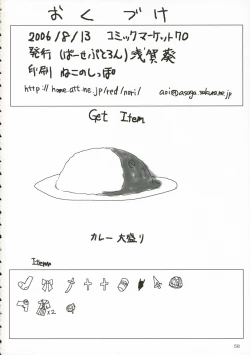 おくづけ
2006/8/13 コミックマーケット70
発行 (ぱーせぷとろん) 浅賀葵
印刷 ねこのしっぽ
http://home.att.ne.jp/red/nori/ aoi@asaga.sakura.ne.jp
Get Item
カレー 大盛り
Item
x2
58